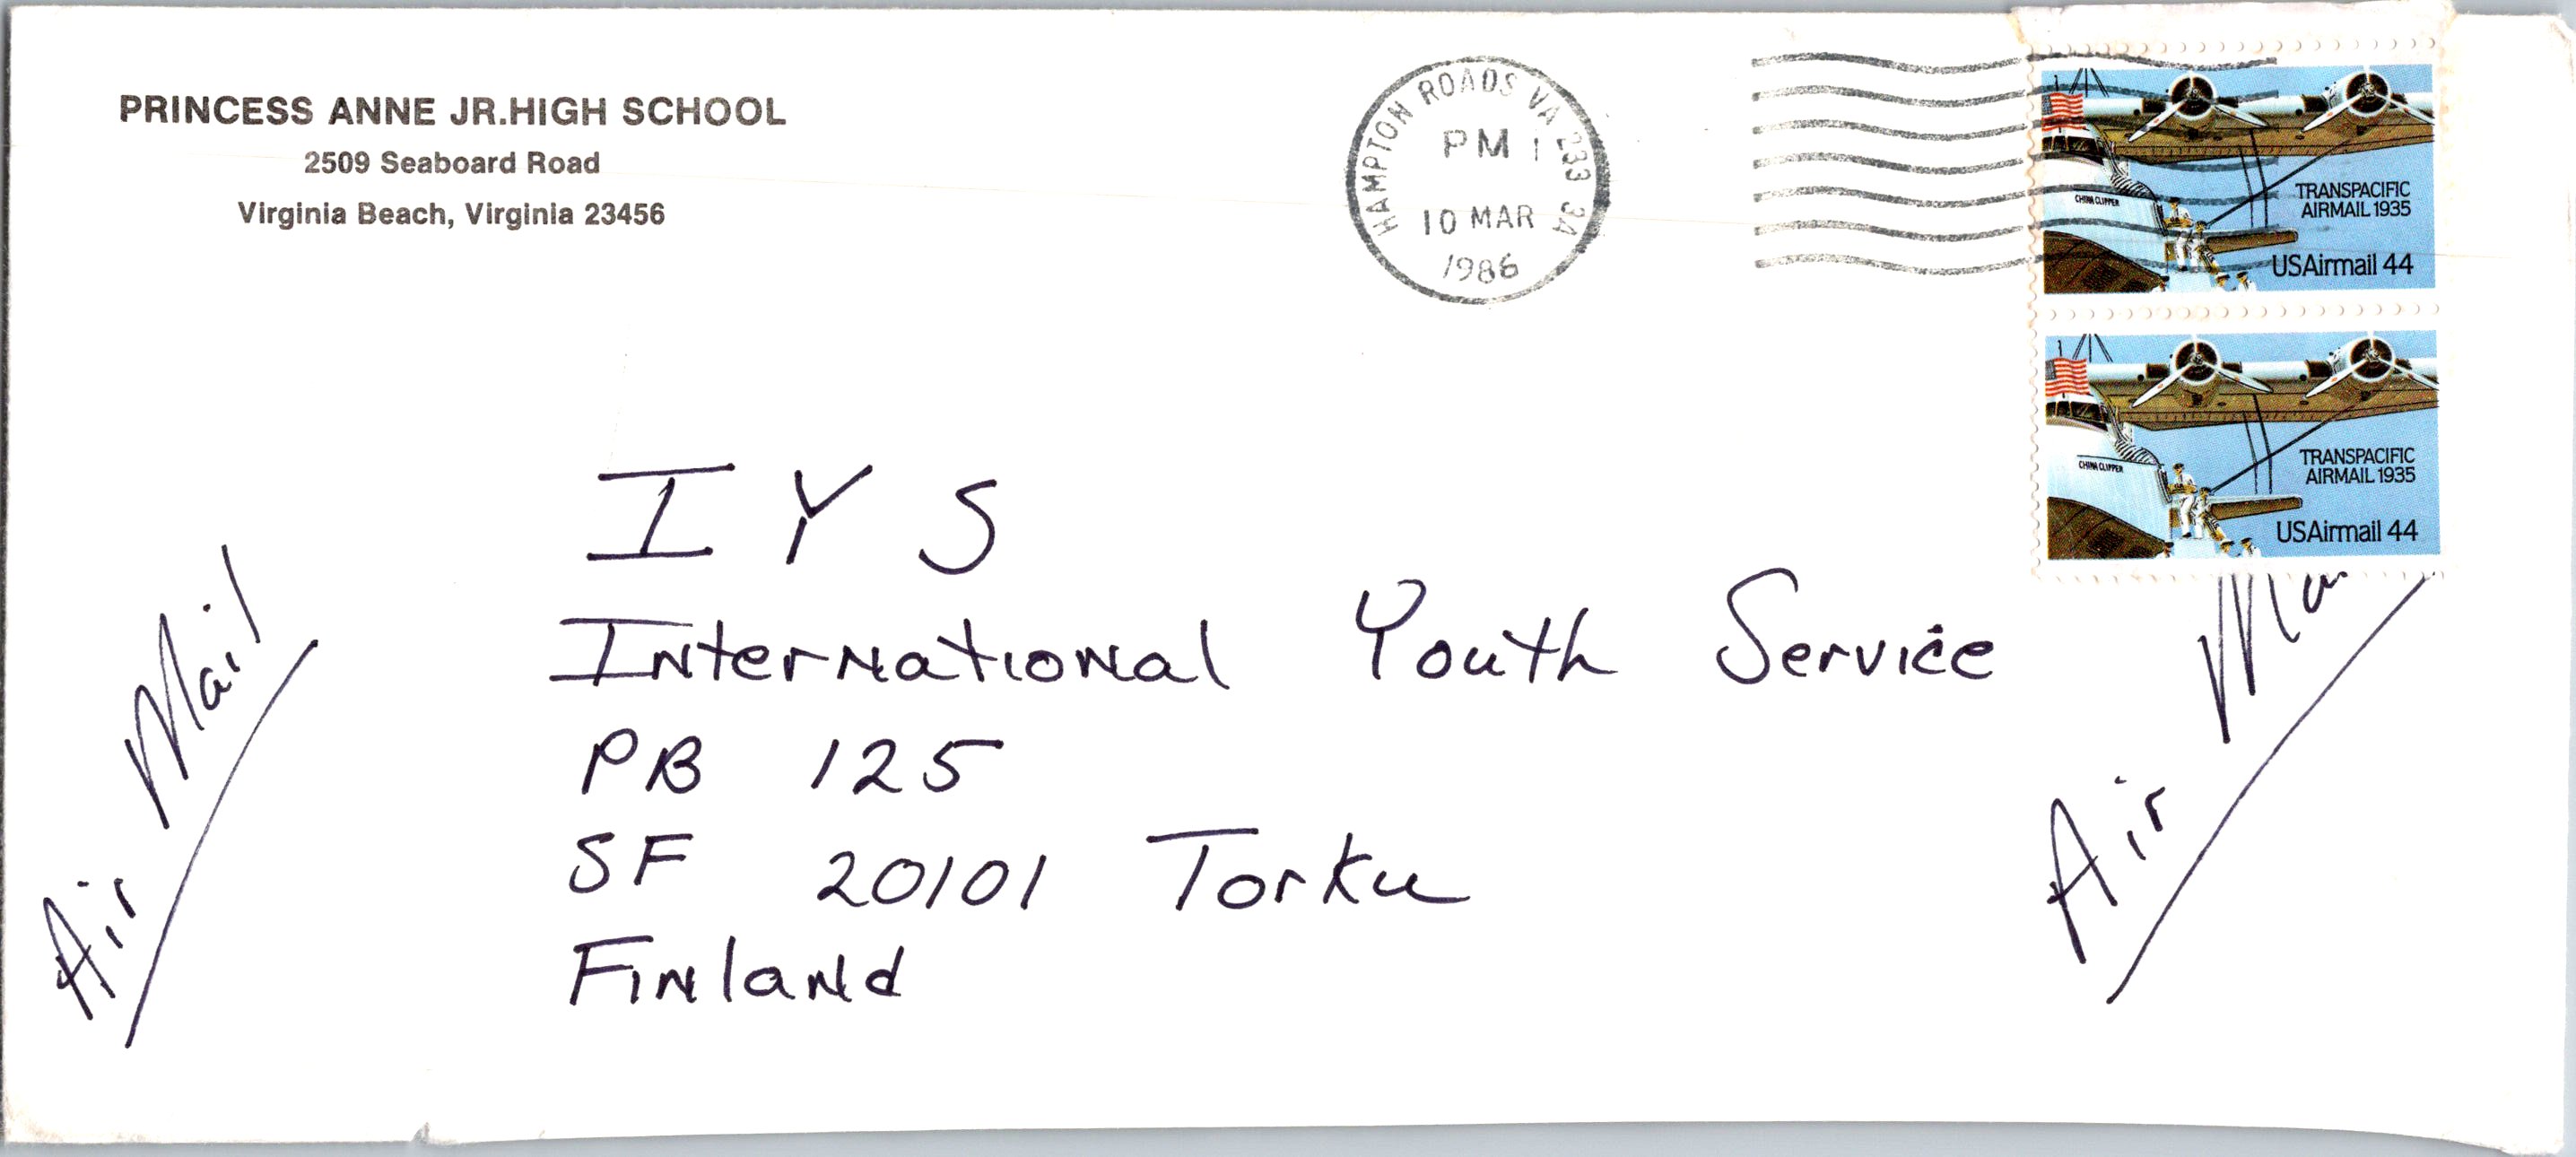 PRINCESS ANNE JR.HIGH SCHOOL
2509 Seaboard Road
Virginia Beach, Virginia 23456
HAMPTON ROADS VA 233 3A
PM
10 MAR
1986
CHINA CLIPPER
TRANSPACIFIC
AIRMAIL 1935
USAirmail 44
CHINA CLIPPER
TRANSPACIFIC
AIRMAIL 1935
USAirmail 44
I Y S
International Youth Service
PB 125
SF 20101 Torku
Finland
Air Mail
Air Ma